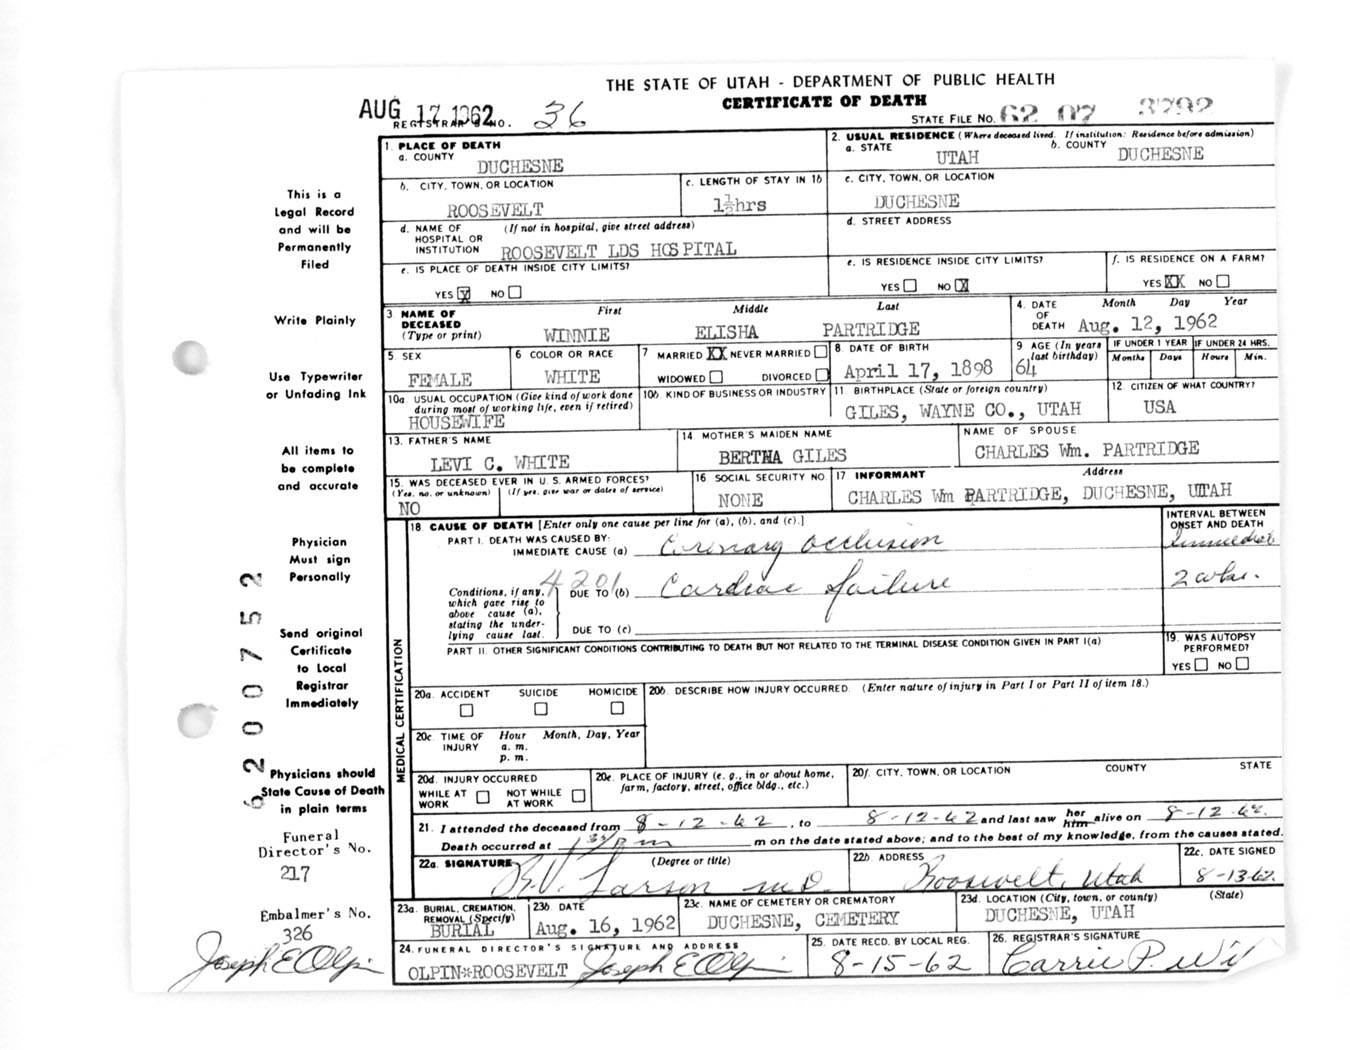 THE STATE OF UTAH - DEPARTMENT OF PUBLIC HEALTH
CERTIFICATE OF DEATH
AUG 17 1962
REGISTRAR'S NO. 36
STATE FILE NO. 62 07 3792
This is a
Legal Record
and will be
Permanently
Filed
Write Plainly
Use Typewriter
or Unfading Ink
All items to
be complete
and accurate
Physician
Must sign
Personally
Send original
Certificate
to Local
Registrar
Immediately
Physicians should
State Cause of Death
in plain terms
6200752
Funeral
Director's No.
217
Embalmer's No.
326
Joseph E Olpin
1. PLACE OF DEATH
a. COUNTY DUCHESNE
2. USUAL RESIDENCE (Where deceased lived. If institution: Residence before admission)
a. STATE UTAH b. COUNTY DUCHESNE
b. CITY, TOWN, OR LOCATION ROOSEVELT
c. LENGTH OF STAY IN 1b 1½hrs
c. CITY, TOWN, OR LOCATION DUCHESNE
d. NAME OF HOSPITAL OR INSTITUTION (If not in hospital, give street address) ROOSEVELT LDS HOSPITAL
d. STREET ADDRESS
e. IS PLACE OF DEATH INSIDE CITY LIMITS?
YES X NO
e. IS RESIDENCE INSIDE CITY LIMITS?
YES NO X
f. IS RESIDENCE ON A FARM?
YES XX NO
3 NAME OF DECEASED (Type or print) First Middle Last
WINNIE ELISHA PARTRIDGE
4. DATE OF DEATH Month Day Year
Aug. 12, 1962
5. SEX FEMALE
6 COLOR OR RACE WHITE
7 MARRIED XX NEVER MARRIED
WIDOWED DIVORCED
8 DATE OF BIRTH April 17, 1898
9 AGE (In years last birthday) 64
IF UNDER 1 YEAR Months Days
IF UNDER 24 HRS. Hours Min.
10a. USUAL OCCUPATION (Give kind of work done during most of working life, even if retired)
HOUSEWIFE
10b. KIND OF BUSINESS OR INDUSTRY
11. BIRTHPLACE (State or foreign country)
GILES, WAYNE CO., UTAH
12. CITIZEN OF WHAT COUNTRY?
USA
13. FATHER'S NAME
LEVI C. WHITE
14. MOTHER'S MAIDEN NAME
BERTHA GILES
NAME OF SPOUSE
CHARLES Wm. PARTRIDGE
15. WAS DECEASED EVER IN U. S. ARMED FORCES?
(Yes, no, or unknown) (If yes, give war or dates of service)
NO
16 SOCIAL SECURITY NO.
NONE
17 INFORMANT Address
CHARLES Wm PARTRIDGE, DUCHESNE, UTAH
MEDICAL CERTIFICATION
18. CAUSE OF DEATH [Enter only one cause per line for (a), (b), and (c).]
INTERVAL BETWEEN ONSET AND DEATH
PART I. DEATH WAS CAUSED BY:
IMMEDIATE CAUSE (a) Coronary occlusion Immediate
4201
Conditions, if any, which gave rise to above cause (a), stating the underlying cause last.
DUE TO (b) Cardiac failure 2 wks.
DUE TO (c)
PART II. OTHER SIGNIFICANT CONDITIONS CONTRIBUTING TO DEATH BUT NOT RELATED TO THE TERMINAL DISEASE CONDITION GIVEN IN PART I(a)
19. WAS AUTOPSY PERFORMED?
YES NO
20a. ACCIDENT SUICIDE HOMICIDE
20b. DESCRIBE HOW INJURY OCCURRED. (Enter nature of injury in Part I or Part II of item 18.)
20c. TIME OF INJURY Hour Month, Day, Year
a. m.
p. m.
20d. INJURY OCCURRED
WHILE AT WORK NOT WHILE AT WORK
20e. PLACE OF INJURY (e. g., in or about home, farm, factory, street, office bldg., etc.)
20f. CITY, TOWN, OR LOCATION COUNTY STATE
21. I attended the deceased from 8-12-62, to 8-12-62 and last saw her him alive on 8-12-62.
Death occurred at pm m on the date stated above; and to the best of my knowledge, from the causes stated.
22a. SIGNATURE (Degree or title)
R.V. Larson M.D.
22b. ADDRESS
Roosevelt, Utah
22c. DATE SIGNED
8-13-62
23a. BURIAL, CREMATION, REMOVAL (Specify)
BURIAL
23b. DATE
Aug. 16, 1962
23c. NAME OF CEMETERY OR CREMATORY
DUCHESNE, CEMETERY
23d. LOCATION (City, town, or county) (State)
DUCHESNE, UTAH
24. FUNERAL DIRECTOR'S SIGNATURE AND ADDRESS
OLPIN*ROOSEVELT Joseph E Olpin
25. DATE RECD. BY LOCAL REG.
8-15-62
26. REGISTRAR'S SIGNATURE
Carrie P.